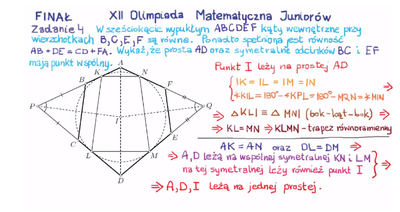 FINAŁ XII Olimpiada Matematyczna Juniorów
Zadanie 4 W sześciokącie wypukłym ABCDEF kąty wewnętrzne przy
wierzchołkach B, C, E, F są równe. Ponadto spełniona jest równość
AB + DE = CD + FA. Wykaż, że prosta AD oraz symetralne odcinków BC i EF
mają punkt wspólny.
Punkt I leży na prostej AD
IK = IL = IM = IN
∢KIL = 180° - ∢KPL = 180° - ∢MQN = ∢MIN
⇒ △KLI ≡ △MNI (bok-kąt-bok)
⇒ KL = MN ⇒ KLMN - trapez równoramienny
AK = AN oraz DL = DM ⇒
⇒ A, D leżą na wspólnej symetralnej KN i LM
na tej symetralnej leży również punkt I
⇒ A, D, I leżą na jednej prostej.
A
K
N
B
F
P
I
Q
C
E
L
M
D